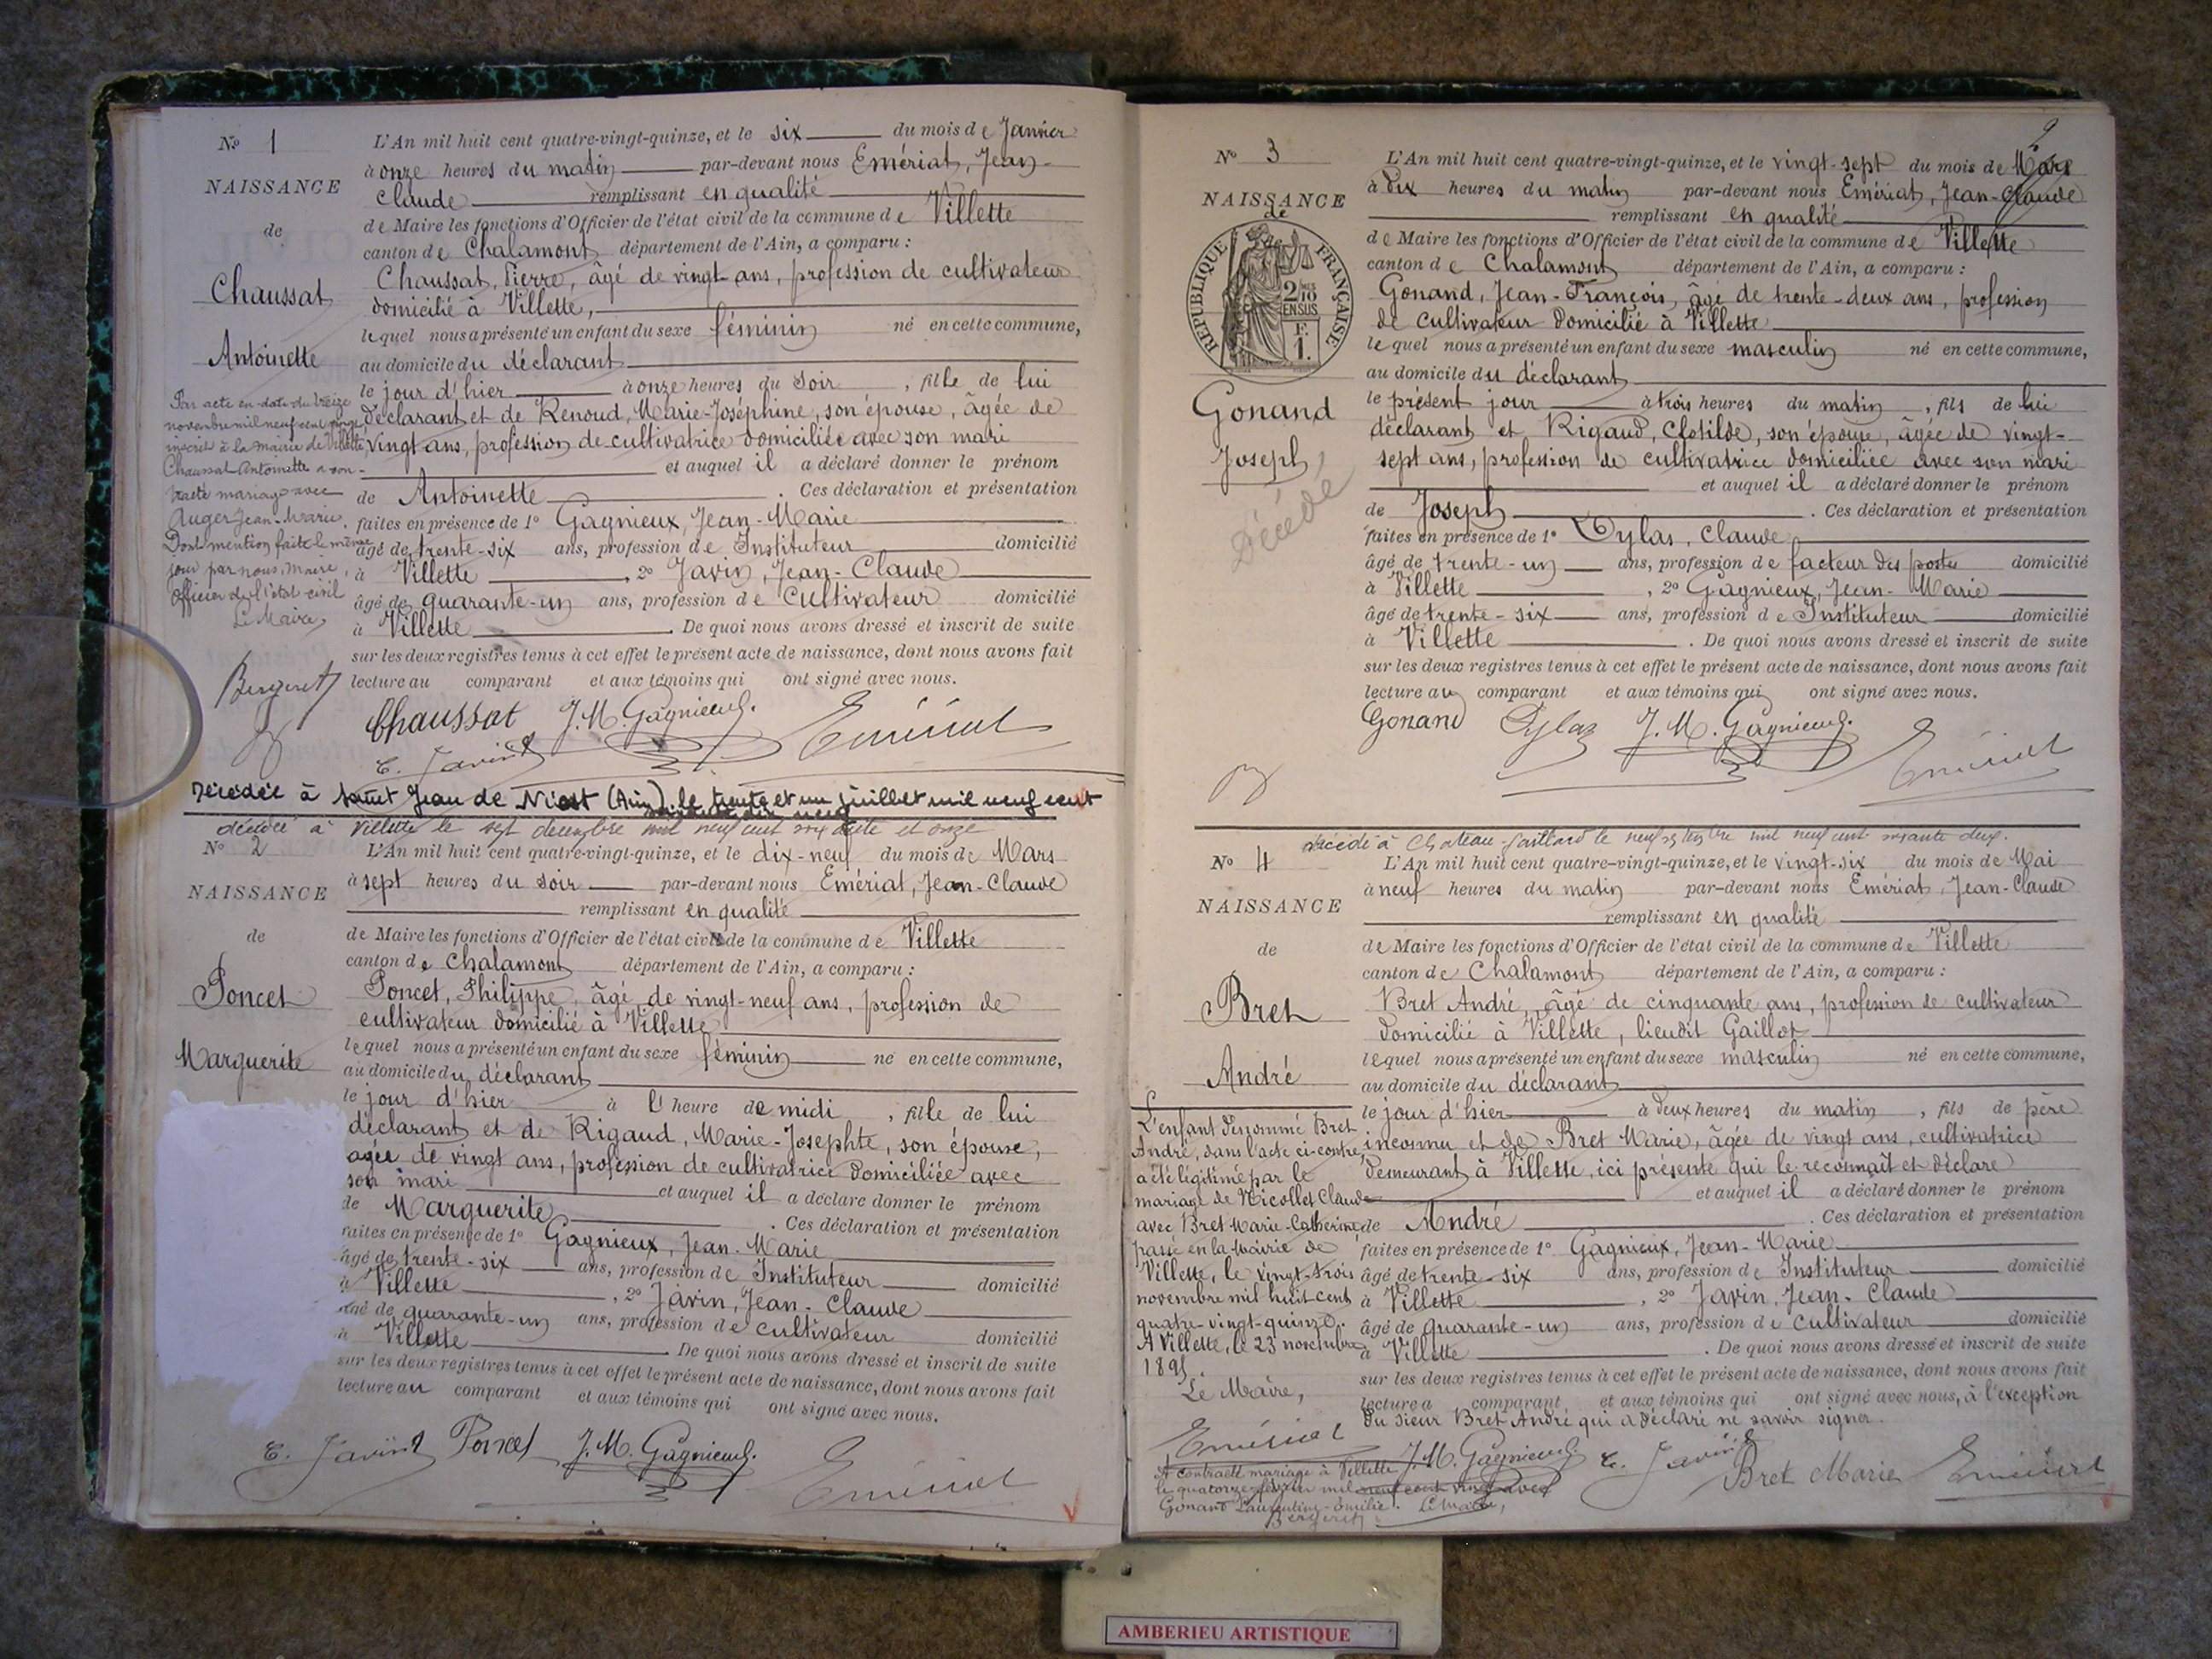 Nº 1
NAISSANCE
de
Chaussat
Antoinette
Par acte en date du treize
novembre mil neuf cent vingt
inscrit à la mairie de Villette
Chaussat Antoinette a con-
tracté mariage avec
Auger Jean-Marie.
Dont mention faite le même
jour par nous, Maire,
Officier de l'état civil
Le Maire,
Bergeret
L'An mil huit cent quatre-vingt-quinze, et le six du mois de Janvier
à onze heures du matin par-devant nous Emériat, Jean-
Claude remplissant en qualité
de Maire les fonctions d'Officier de l'état civil de la commune de Villette
canton de Chalamont département de l'Ain, a comparu :
Chaussat, Pierre, âgé de vingt ans, profession de cultivateur
domicilié à Villette,
lequel nous a présenté un enfant du sexe féminin né en cette commune,
au domicile du déclarant
le jour d'hier à onze heures du soir, fille de lui
déclarant et de Renoud, Marie-Joséphine, son épouse, âgée de
vingt ans, profession de cultivatrice domiciliée avec son mari
et auquel il a déclaré donner le prénom
de Antoinette. Ces déclaration et présentation
faites en présence de 1º Gagnieux, Jean-Marie
âgé de trente-six ans, profession de Instituteur domicilié
à Villette, 2º Javin, Jean-Claude
âgé de quarante-un ans, profession de cultivateur domicilié
à Villette. De quoi nous avons dressé et inscrit de suite
sur les deux registres tenus à cet effet le présent acte de naissance, dont nous avons fait
lecture au comparant et aux témoins qui ont signé avec nous.
Chaussat J. M. Gagnieux. Emériat
C. Javin
Décédée à Saint Jean de Niost (Ain) le trente et un juillet mil neuf cent
décédée à Villette le sept décembre mil neuf cent soixante et onze
Nº 2
NAISSANCE
de
Poncet
Marguerite
L'An mil huit cent quatre-vingt-quinze, et le dix-neuf du mois de Mars
à sept heures du soir par-devant nous Emériat, Jean-Claude
remplissant en qualité
de Maire les fonctions d'Officier de l'état civil de la commune de Villette
canton de Chalamont département de l'Ain, a comparu :
Poncet, Philippe, âgé de vingt-neuf ans, profession de
cultivateur domicilié à Villette
lequel nous a présenté un enfant du sexe féminin né en cette commune,
au domicile du déclarant
le jour d'hier à l'heure de midi, fille de lui
déclarant et de Rigaud, Marie-Josephte, son épouse,
agée de vingt ans, profession de cultivatrice domiciliée avec
son mari et auquel il a déclaré donner le prénom
de Marguerite. Ces déclaration et présentation
faites en présence de 1º Gagnieux, Jean-Marie
âgé de trente-six ans, profession de Instituteur domicilié
à Villette, 2º Javin, Jean-Claude
âgé de quarante-un ans, profession de cultivateur domicilié
à Villette. De quoi nous avons dressé et inscrit de suite
sur les deux registres tenus à cet effet le présent acte de naissance, dont nous avons fait
lecture au comparant et aux témoins qui ont signé avec nous.
C. Javin Poncet J. M. Gagnieux. Emériat
9
Nº 3
NAISSANCE
de
REPUBLIQUE FRANÇAISE
2/10 EN SUS
F.
1.
Gonand
Joseph
Décédé
L'An mil huit cent quatre-vingt-quinze, et le vingt-sept du mois de Mars
à dix heures du matin par-devant nous Emériat, Jean-Claude
remplissant en qualité
de Maire les fonctions d'Officier de l'état civil de la commune de Villette
canton de Chalamont département de l'Ain, a comparu :
Gonand, Jean-François, âgé de trente-deux ans, profession
de cultivateur domicilié à Villette
lequel nous a présenté un enfant du sexe masculin né en cette commune,
au domicile du déclarant
le présent jour à trois heures du matin, fils de lui
déclarant et Rigaud, Clotilde, son épouse, âgée de vingt-
sept ans, profession de cultivatrice domiciliée avec son mari
et auquel il a déclaré donner le prénom
de Joseph. Ces déclaration et présentation
faites en présence de 1º Dylas, Claude
âgé de trente-un ans, profession de facteur des postes domicilié
à Villette, 2º Gagnieux, Jean-Marie
âgé de trente-six ans, profession de Instituteur domicilié
à Villette. De quoi nous avons dressé et inscrit de suite
sur les deux registres tenus à cet effet le présent acte de naissance, dont nous avons fait
lecture au comparant et aux témoins qui ont signé avec nous.
Gonand Dylas J. M. Gagnieux. Emériat
décédé à Chateau-Gaillard le neuf mil neuf cent soixante deux.
Nº 4
NAISSANCE
de
Bret
André
L'enfant dénommé Bret
André, dans l'acte ci-contre,
a été légitimé par le
mariage de Nicollet Claude
avec Bret Marie-Catherine
passé en la Mairie de
Villette, le vingt-trois
novembre mil huit cent
quatre-vingt-quinze.
A Villette, le 23 novembre
1895
Le Maire,
Emériat
A contracté mariage à Villette
le quatorze février mil neuf cent vingt avec
Gonand Laurentine-Emilie. Le Maire,
Bergeret
L'An mil huit cent quatre-vingt-quinze, et le vingt-six du mois de Mai
à neuf heures du matin par-devant nous Emériat, Jean-Claude
remplissant en qualité
de Maire les fonctions d'Officier de l'état civil de la commune de Villette
canton de Chalamont département de l'Ain, a comparu :
Bret André, âgé de cinquante ans, profession de cultivateur
domicilié à Villette, lieudit Gaillot
lequel nous a présenté un enfant du sexe masculin né en cette commune,
au domicile du déclarant
le jour d'hier à deux heures du matin, fils de père
inconnu et de Bret Marie, âgée de vingt ans, cultivatrice
demeurant à Villette, ici présente qui le reconnaît et déclare
et auquel il a déclaré donner le prénom
de André. Ces déclaration et présentation
faites en présence de 1º Gagnieux, Jean-Marie
âgé de trente-six ans, profession de Instituteur domicilié
à Villette, 2º Javin, Jean-Claude
âgé de quarante-un ans, profession de cultivateur domicilié
à Villette. De quoi nous avons dressé et inscrit de suite
sur les deux registres tenus à cet effet le présent acte de naissance, dont nous avons fait
lecture a comparant et aux témoins qui ont signé avec nous, à l'exception
du sieur Bret André qui a déclaré ne savoir signer.
J. M. Gagnieux C. Javin Bret Marie Emériat
AMBERIEU ARTISTIQUE